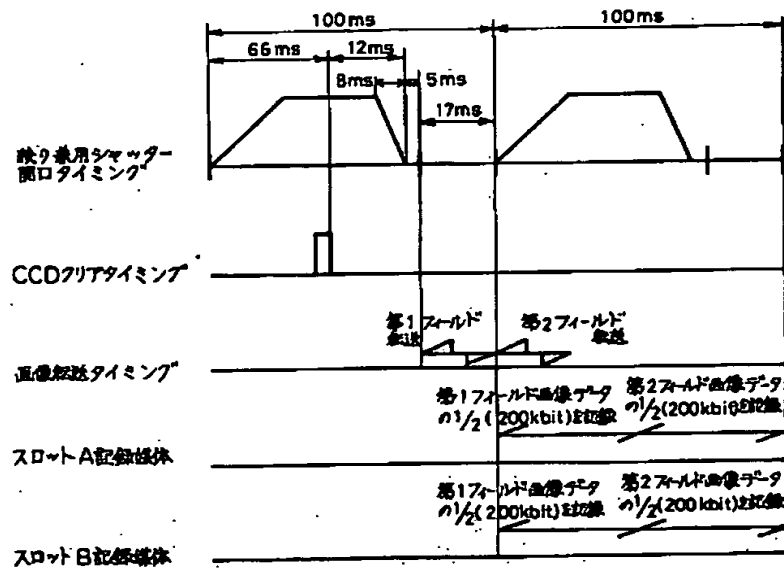 100ms
100ms
66ms
12ms
8ms
5ms
17ms
絞り兼用シャッター
開口タイミング
CCDクリアタイミング
第1フィールド
転送
第2フィールド
転送
画像転送タイミング
第1フィールド画像データ
の1/2(200kbit)を記録
第2フィールド画像データ
の1/2(200kbit)を記録
スロットA記録媒体
第1フィールド画像データ
の1/2(200kbit)を記録
第2フィールド画像データ
の1/2(200kbit)を記録
スロットB記録媒体